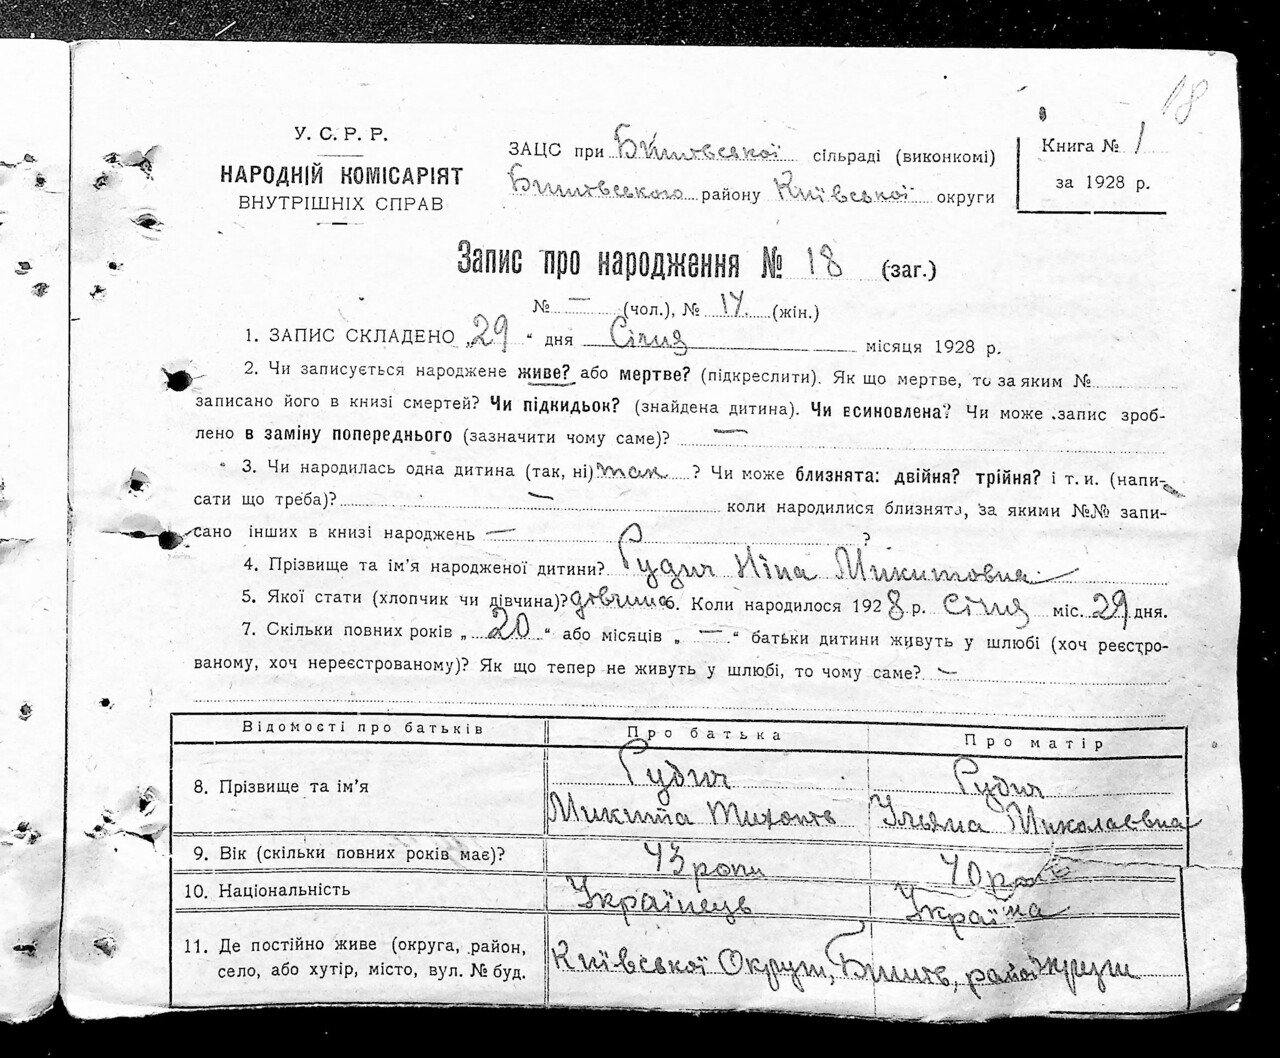 18
У. С. Р. Р.
НАРОДНІЙ КОМІСАРІЯТ
ВНУТРІШНІХ СПРАВ
ЗАЦС при Бишівської сільраді (виконкомі)
Бишівського району Київської округи
Книга № 1
за 1928 р.
Запис про народження № 18 (заг.)
№ — (чол.), № 14 (жін.)
1. ЗАПИС СКЛАДЕНО „29“ дня Січня місяця 1928 р.
2. Чи записується народжене живе? або мертве? (підкреслити). Як що мертве, то за яким №
записано його в книзі смертей? Чи підкидьок? (знайдена дитина). Чи всиновлена? Чи може запис зроб-
лено в заміну попереднього (зазначити чому саме)? —
3. Чи народилась одна дитина (так, ні) так ? Чи може близнята: двійня? трійня? і т. и. (напи-
сати що треба)? — коли народилися близнята, за якими №№ запи-
сано інших в книзі народжень — ?
4. Прізвище та ім'я народженої дитини? Рудич Ніна Микитовна
5. Якої стати (хлопчик чи дівчина)? дівчина 6. Коли народилося 1928 р. Січня міс. 29 дня.
7. Скільки повних років „20“ або місяців „—“ батьки дитини живуть у шлюбі (хоч реєстро-
ваному, хоч нереєстрованому)? Як що тепер не живуть у шлюбі, то чому саме? —
Відомості про батьків Про батька Про матір
8. Прізвище та ім'я Рудич Рудич
Микита Тихонів Ульяна Миколаевна
9. Вік (скільки повних років має)? 43 роки 40 ро
10. Національність Українець Українка
11. Де постійно живе (округа, район,
село, або хутір, місто, вул. № буд.
Київської Округи, Бишів, район